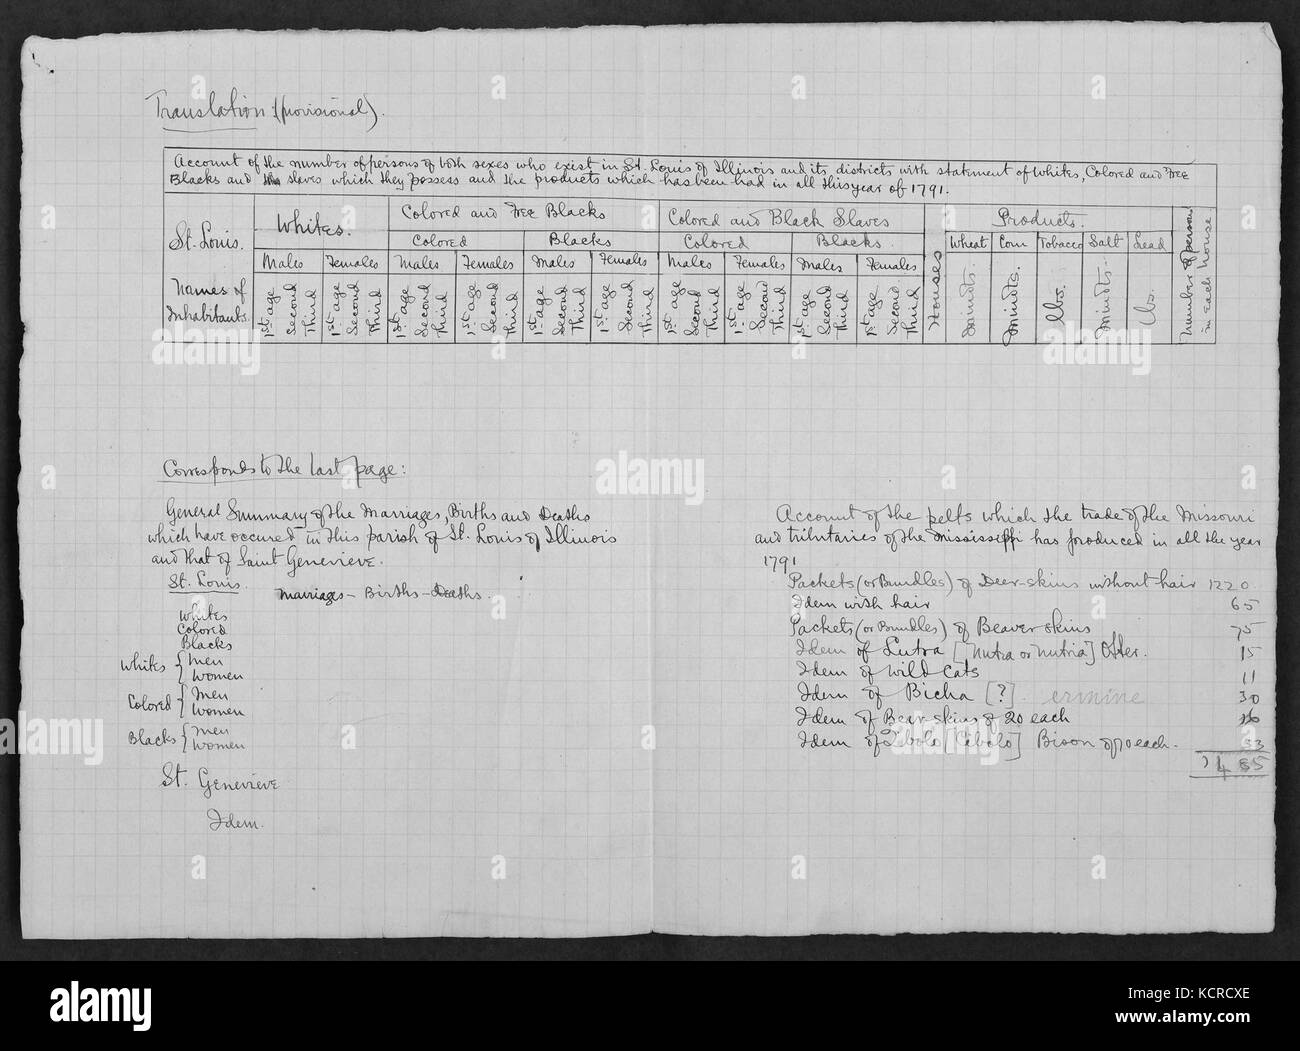 Translation (provisional).
Account of the number of persons of both sexes who exist in St. Louis of Illinois and its districts with statement of Whites, Colored and Free
Blacks and the slaves which they possess and the products which has been had in all this year of 1791.
St. Louis.
Names of
Inhabitants.
Whites.
Colored and Free Blacks
Colored and Black Slaves
Products.
Colored Blacks Colored Blacks.
Males Females Males Females Males Females Males Females Males Females
1st age Second Third 1st age Second Third 1st age Second Third 1st age Second Third 1st age Second Third 1st age Second Third 1st age Second Third 1st age Second Third 1st age Second Third 1st age Second Third
Houses
Wheat Corn Tobacco Salt Lead
minots. minots. lbs. minots lb.
Number of persons
in each house
Corresponds to the last page:
General Summary of the Marriages, Births and Deaths
which have occured in this parish of St. Louis of Illinois
and that of Saint Genevieve.
St. Louis.
Marriages – Births – Deaths.
Whites
Colored
Blacks
Whites { Men
Women
Colored { Men
Women
Blacks { Men
Women
St. Genevieve
Idem.
Account of the pelts which the trade of the Missouri
and tributaries of the Mississippi has produced in all the year
1791
Packets (or Bundles) of Deer-skins without hair 1220
Idem with hair 65
Packets (or Bundles) of Beaver skins 75
Idem of Lutra [Nutra or Nutria] Otter. 15
Idem of wild cats 11
Idem of Bicha [?] ermine 30
Idem of Bear-skins of 20 each
Idem of Zibolo [Cibolo] Bison of 10 each. 33
alamy
alamy stock photo
KCRCXE
www.alamy.com